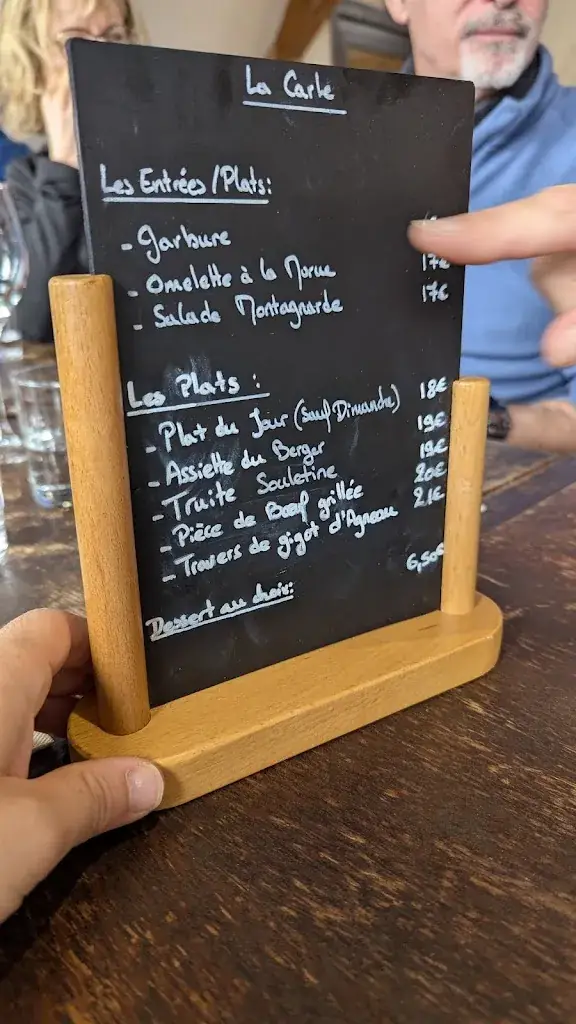 La Carte
Les Entrées/Plats:
- Garbure
- Omelette à la Morue 17€
- Salade Montagnarde 17€
Les Plats :
- Plat du Jour (sauf Dimanche) 18€
- Assiette du Berger 19€
- Truite Souletine 19€
- Pièce de Bœuf grillée 20€
- Travers de gigot d'Agneau 21€
Dessert au choix: 6,50€